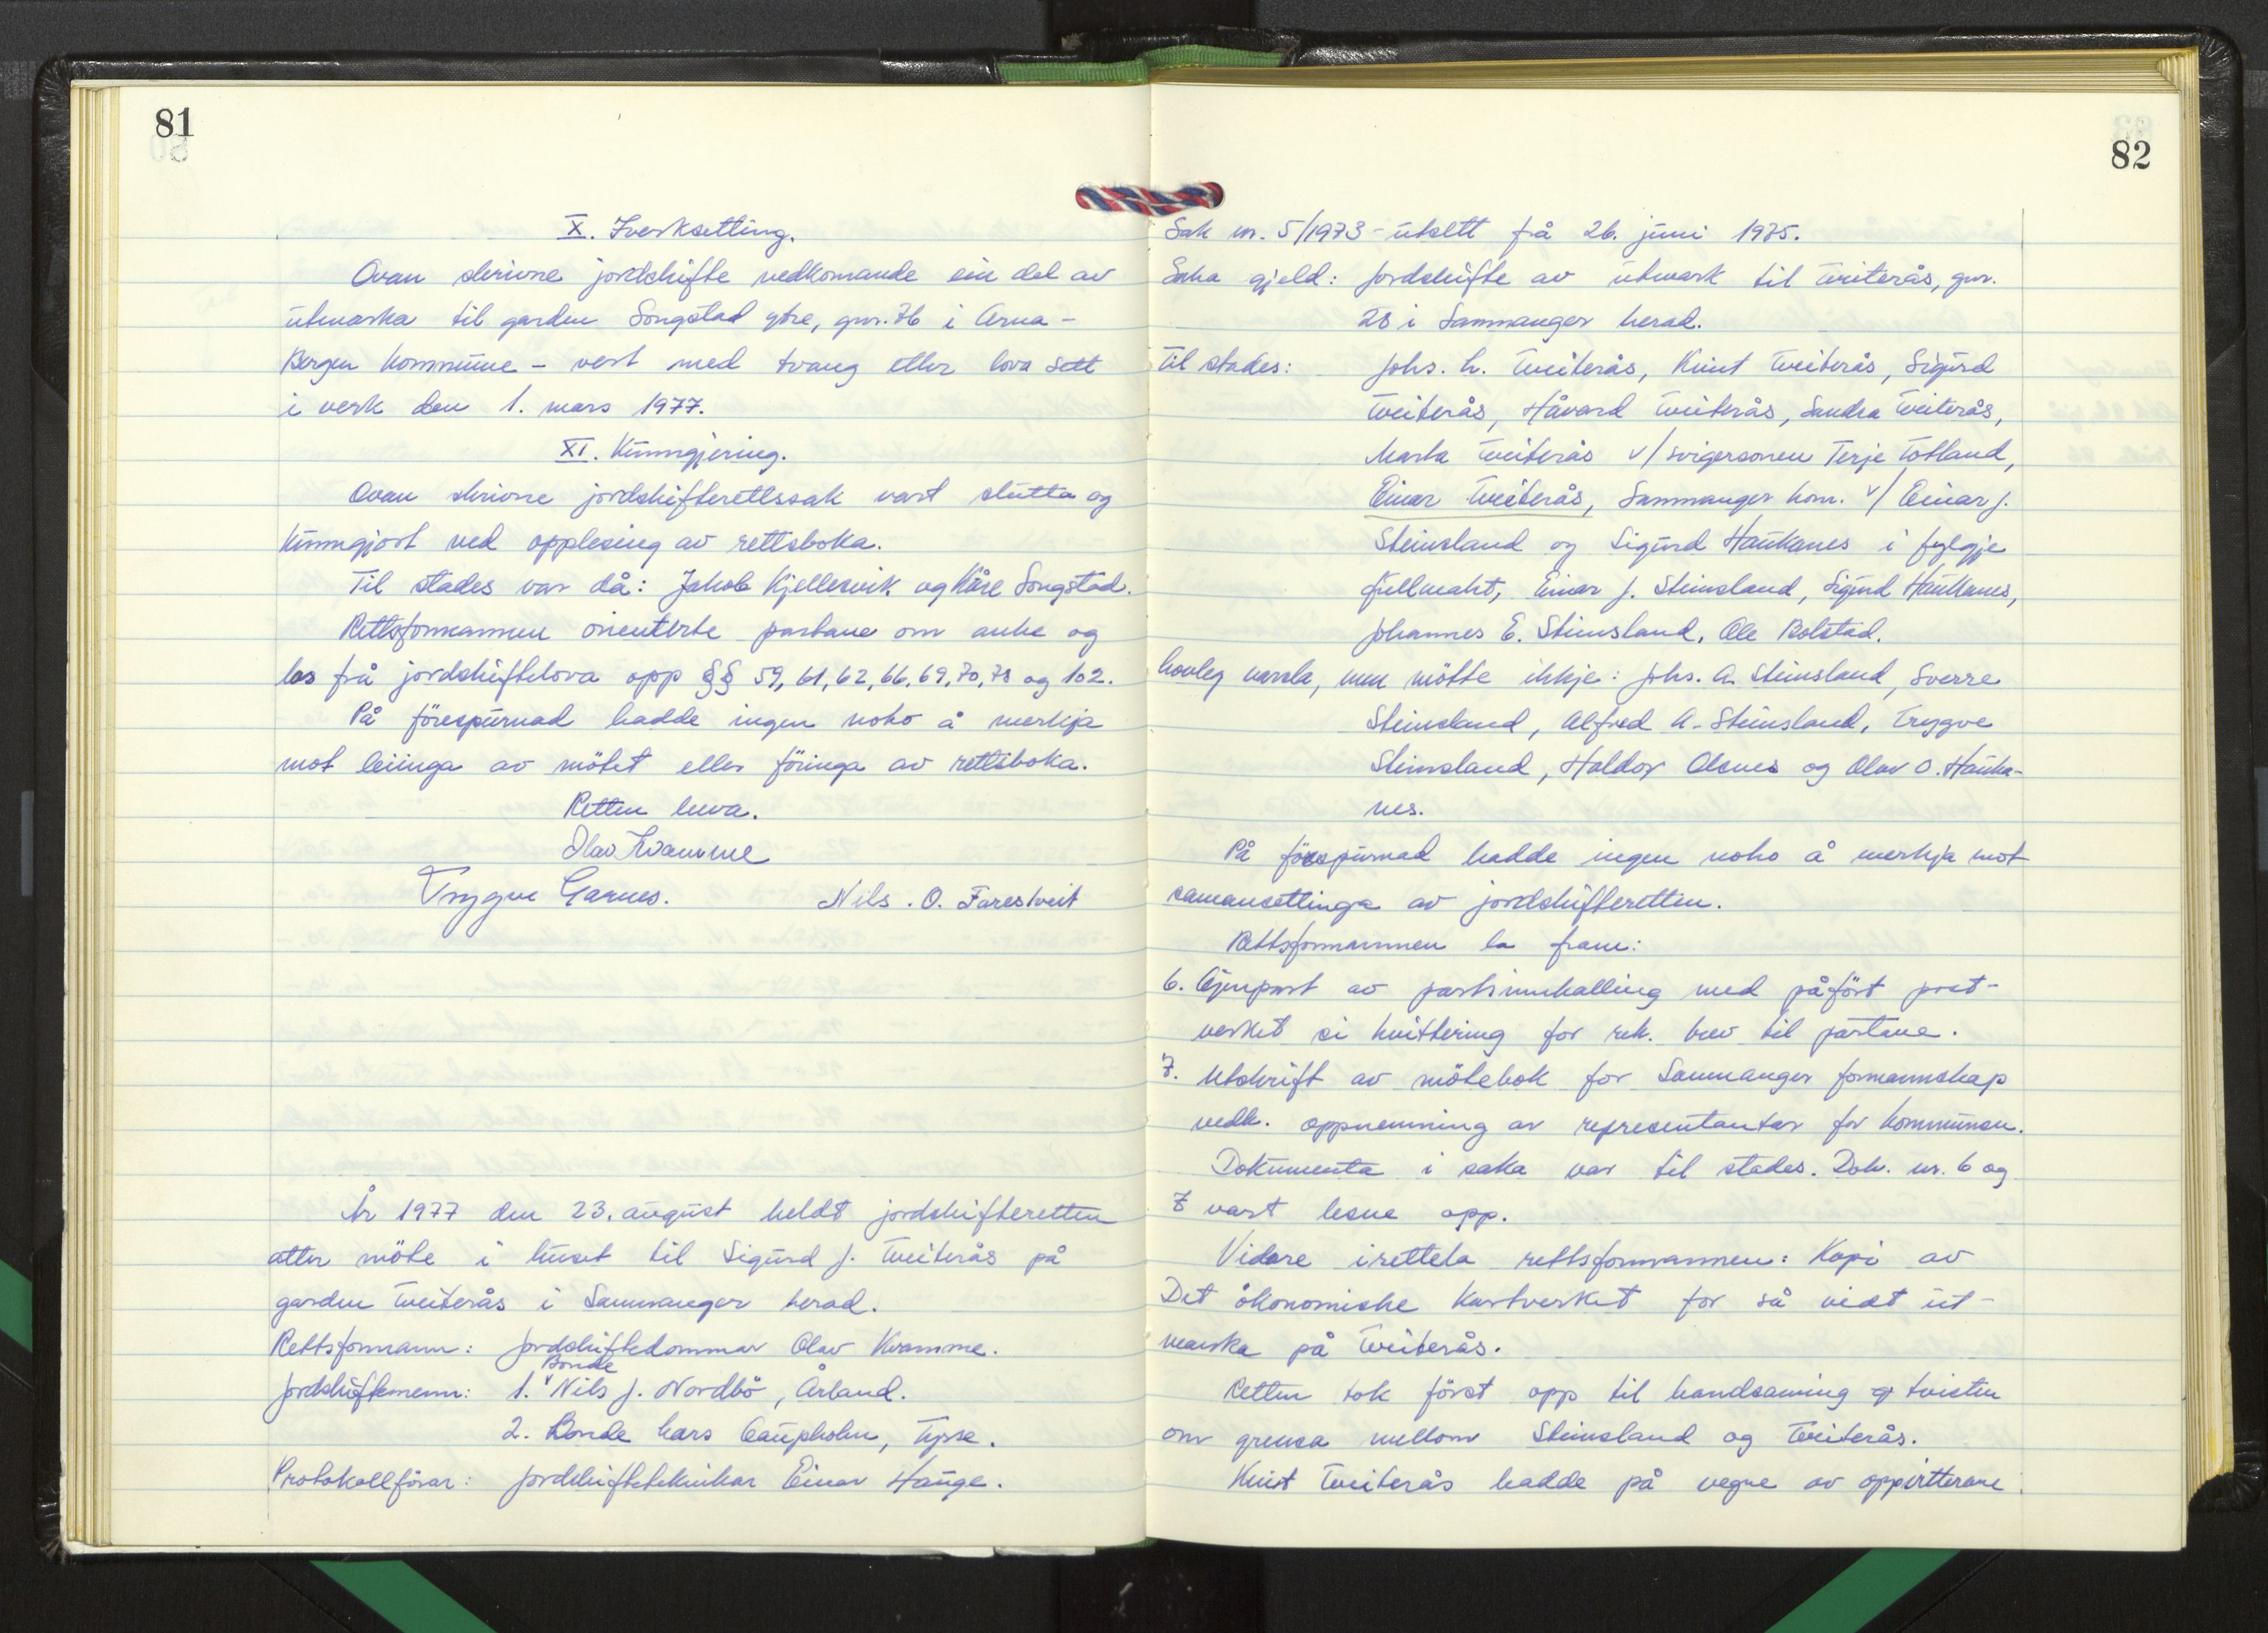 81
X. Iverksetting.
Ovan skrivne jordskifte vedkomande ein del av
utmarka til garden Songstad ytre, gnr. 76 i Arna -
Bergen kommune - vert med tvang etter lova sett
i verk den 1. mars 1977.
XI. Kunngjering.
Ovan skrivne jordskifterettssak vart slutta og
kunngjort ved opplesing av rettsboka.
Til stades var då: Jakob Kjellesvik og Kåre Songstad.
Rettsformannen orienterte partane om anke og
las frå jordskiftelova opp §§ 59, 61, 62, 66, 69, 70, 78 og 102.
På förespurnad hadde ingen noko å merkja
mot leiinga av mötet eller föringa av rettsboka.
Retten heva.
Olav Kvamme
Trygve Garnes. Nils. O. Farestveit
År 1977 den 23. august heldt jordskifteretten
atter möte i huset til Sigurd J. Tveiterås på
garden Tveiterås i Samnanger herad.
Rettsformann: Jordskiftedommar Olav Kvamme.
Jordskiftemenn: 1. Bonde Nils J. Nordbö, Årland.
2. Bonde Lars Gaupholm, Tysse.
Protokollförar: Jordskifteteknikar Einar Hauge.
82
Sak nr. 5/1973 - utsett frå 26. juni 1975.
Saka gjeld: Jordskifte av utmark til Tveiterås, gnr.
28 i Samnanger herad.
Til stades: Johs. L. Tveiterås, Knut Tveiterås, Sigurd
Tveiterås, Håvard Tveiterås, Sandra Tveiterås,
Marta Tveiterås v/ svigersonen Terje Totland,
Einar Tveiterås, Samnanger kom. v/ Einar J.
Steinsland og Sigurd Haukanes i fylgje
fullmakt, Einar J. Steinsland, Sigurd Haukanes,
Johannes E. Steinsland, Ole Bolstad.
Lovleg varsla, men mötte ikkje: Johs. A. Steinsland, Sverre
Steinsland, Alfred A. Steinsland, Trygve
Steinsland, Haldor Aldnes og Olav O. Hauka-
nes.
På förespurnad hadde ingen noko å merkja mot
samansettinga av jordskifteretten.
Rettsformannen la fram:
6. Gjenpart av partsinnkalling med påfört post-
verket si kvittering for rek. brev til partane.
7. Utskrift av mötebok for Samnanger formannskap
vedk. oppnemning av representantar for kommunen.
Dokumenta i saka var til stades. Dok. nr. 6 og
7 vart lesne opp.
Vidare irettela rettsformannen: Kopi av
Det ökonomiske kartverket for så vidt ut-
marka på Tveiterås.
Retten tok först opp til handsaming tvisten
om grensa mellom Steinsland og Tveiterås.
Knut Tveiterås hadde på vegne av oppsitterane